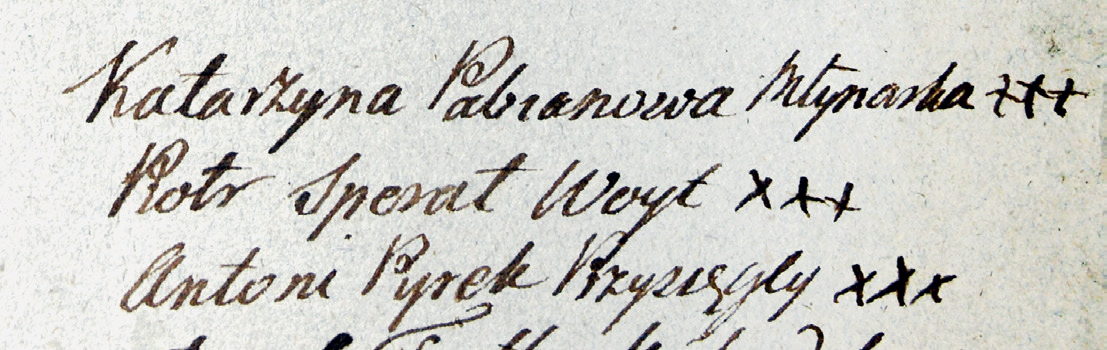 Katarzyna Pabianowa Młynarka +++
Piotr Sperat Woyt x++
Antoni Pyrek Przysięgły xxx